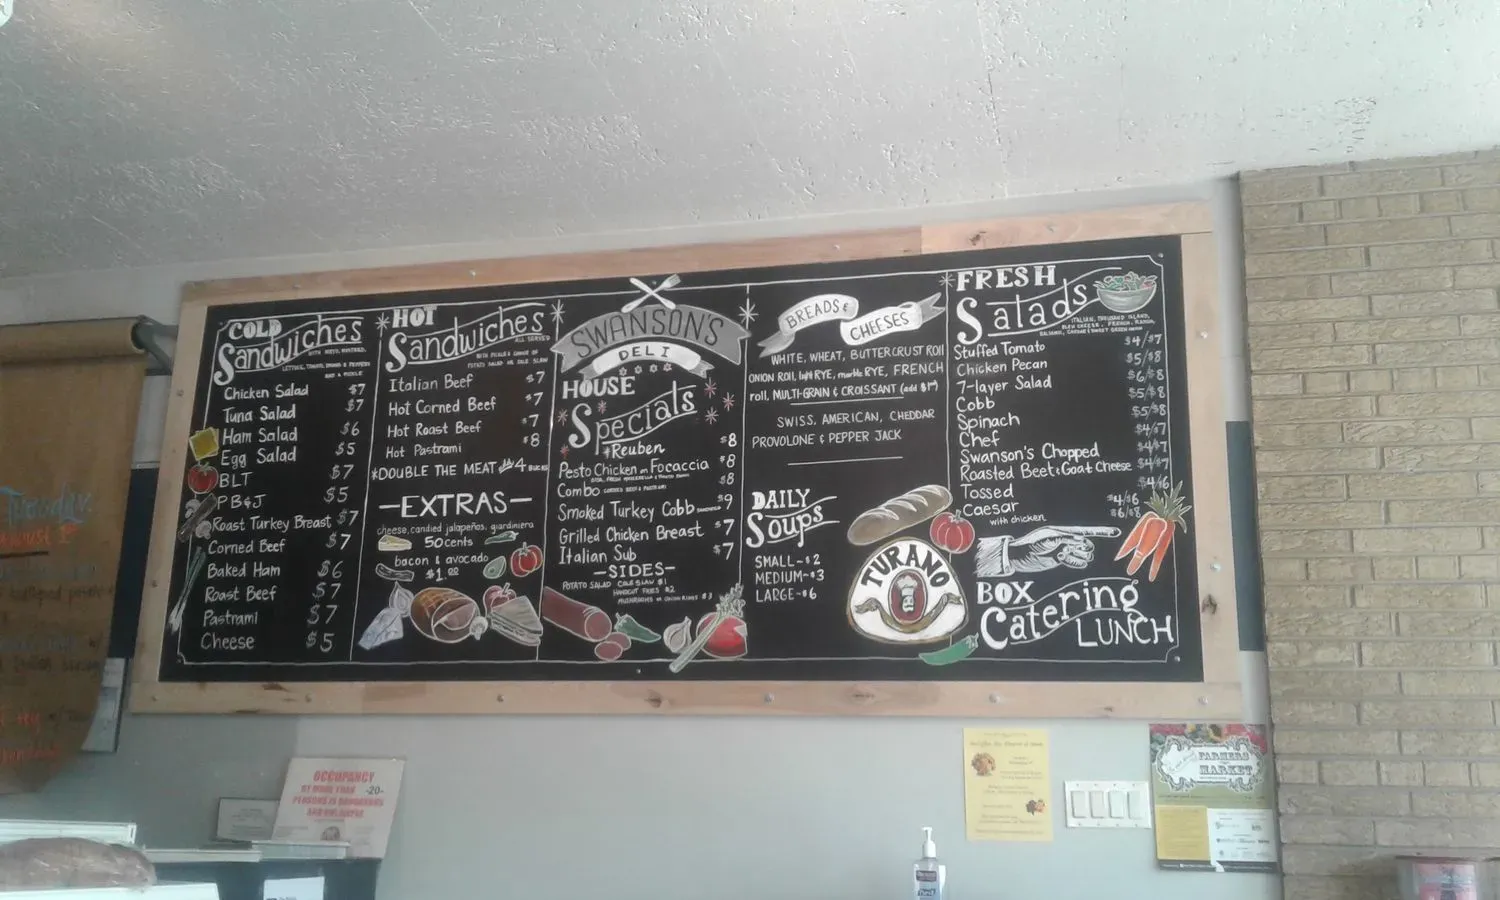 COLD
Sandwiches
WITH MAYO, MUSTARD,
LETTUCE, TOMATO, ONIONS & PEPPERS
AND A PICKLE
Chicken Salad $7
Tuna Salad $7
Ham Salad $6
Egg Salad $5
BLT $7
PB&J $5
Roast Turkey Breast $7
Corned Beef $7
Baked Ham $6
Roast Beef $7
Pastrami $7
Cheese $5
HOT
Sandwiches
ALL SERVED
WITH PICKLE & CHOICE OF
POTATO SALAD OR COLE SLAW
Italian Beef $7
Hot Corned Beef $7
Hot Roast Beef $7
Hot Pastrami $8
*DOUBLE THE MEAT 4 BUCKS
—EXTRAS—
cheese, candied jalapeños, giardiniera
50 cents
bacon & avocado
$1.00
SWANSON'S
DELI
HOUSE
Specials
Reuben $8
Pesto Chicken on Focaccia $8
Combo CORNED BEEF & PASTRAMI $8
Smoked Turkey Cobb SANDWICH $9
Grilled Chicken Breast $7
Italian Sub $7
—SIDES—
POTATO SALAD COLE SLAW $1
HANDCUT FRIES $2
MUSHROOMS OR ONION RINGS $3
BREADS &
CHEESES
WHITE, WHEAT, BUTTERCRUST ROLL
ONION ROLL, light RYE, marble RYE, FRENCH
roll, MULTI-GRAIN & CROISSANT (add $1)
SWISS, AMERICAN, CHEDDAR
PROVOLONE & PEPPER JACK
DAILY
Soups
SMALL~$2
MEDIUM~$3
LARGE~$6
TURANO
FRESH
Salads
ITALIAN, THOUSAND ISLAND,
BLEU CHEESE, FRENCH, RANCH,
BALSAMIC, CAESAR & SWEET GREEN ONION
Stuffed Tomato $4/$7
Chicken Pecan $5/$8
7-layer Salad $6/$8
Cobb $5/$8
Spinach $5/$8
Chef $4/$7
Swanson's Chopped $4/$7
Roasted Beet & Goat Cheese $4/$7
Tossed $4/$6
Caesar $4/$6
with chicken $6/$8
BOX
Catering
LUNCH
Tuesday
August 1st
OCCUPANCY
BY MORE THAN -20-
PERSONS IS DANGEROUS
AND UNLAWFUL
FARMERS
MARKET